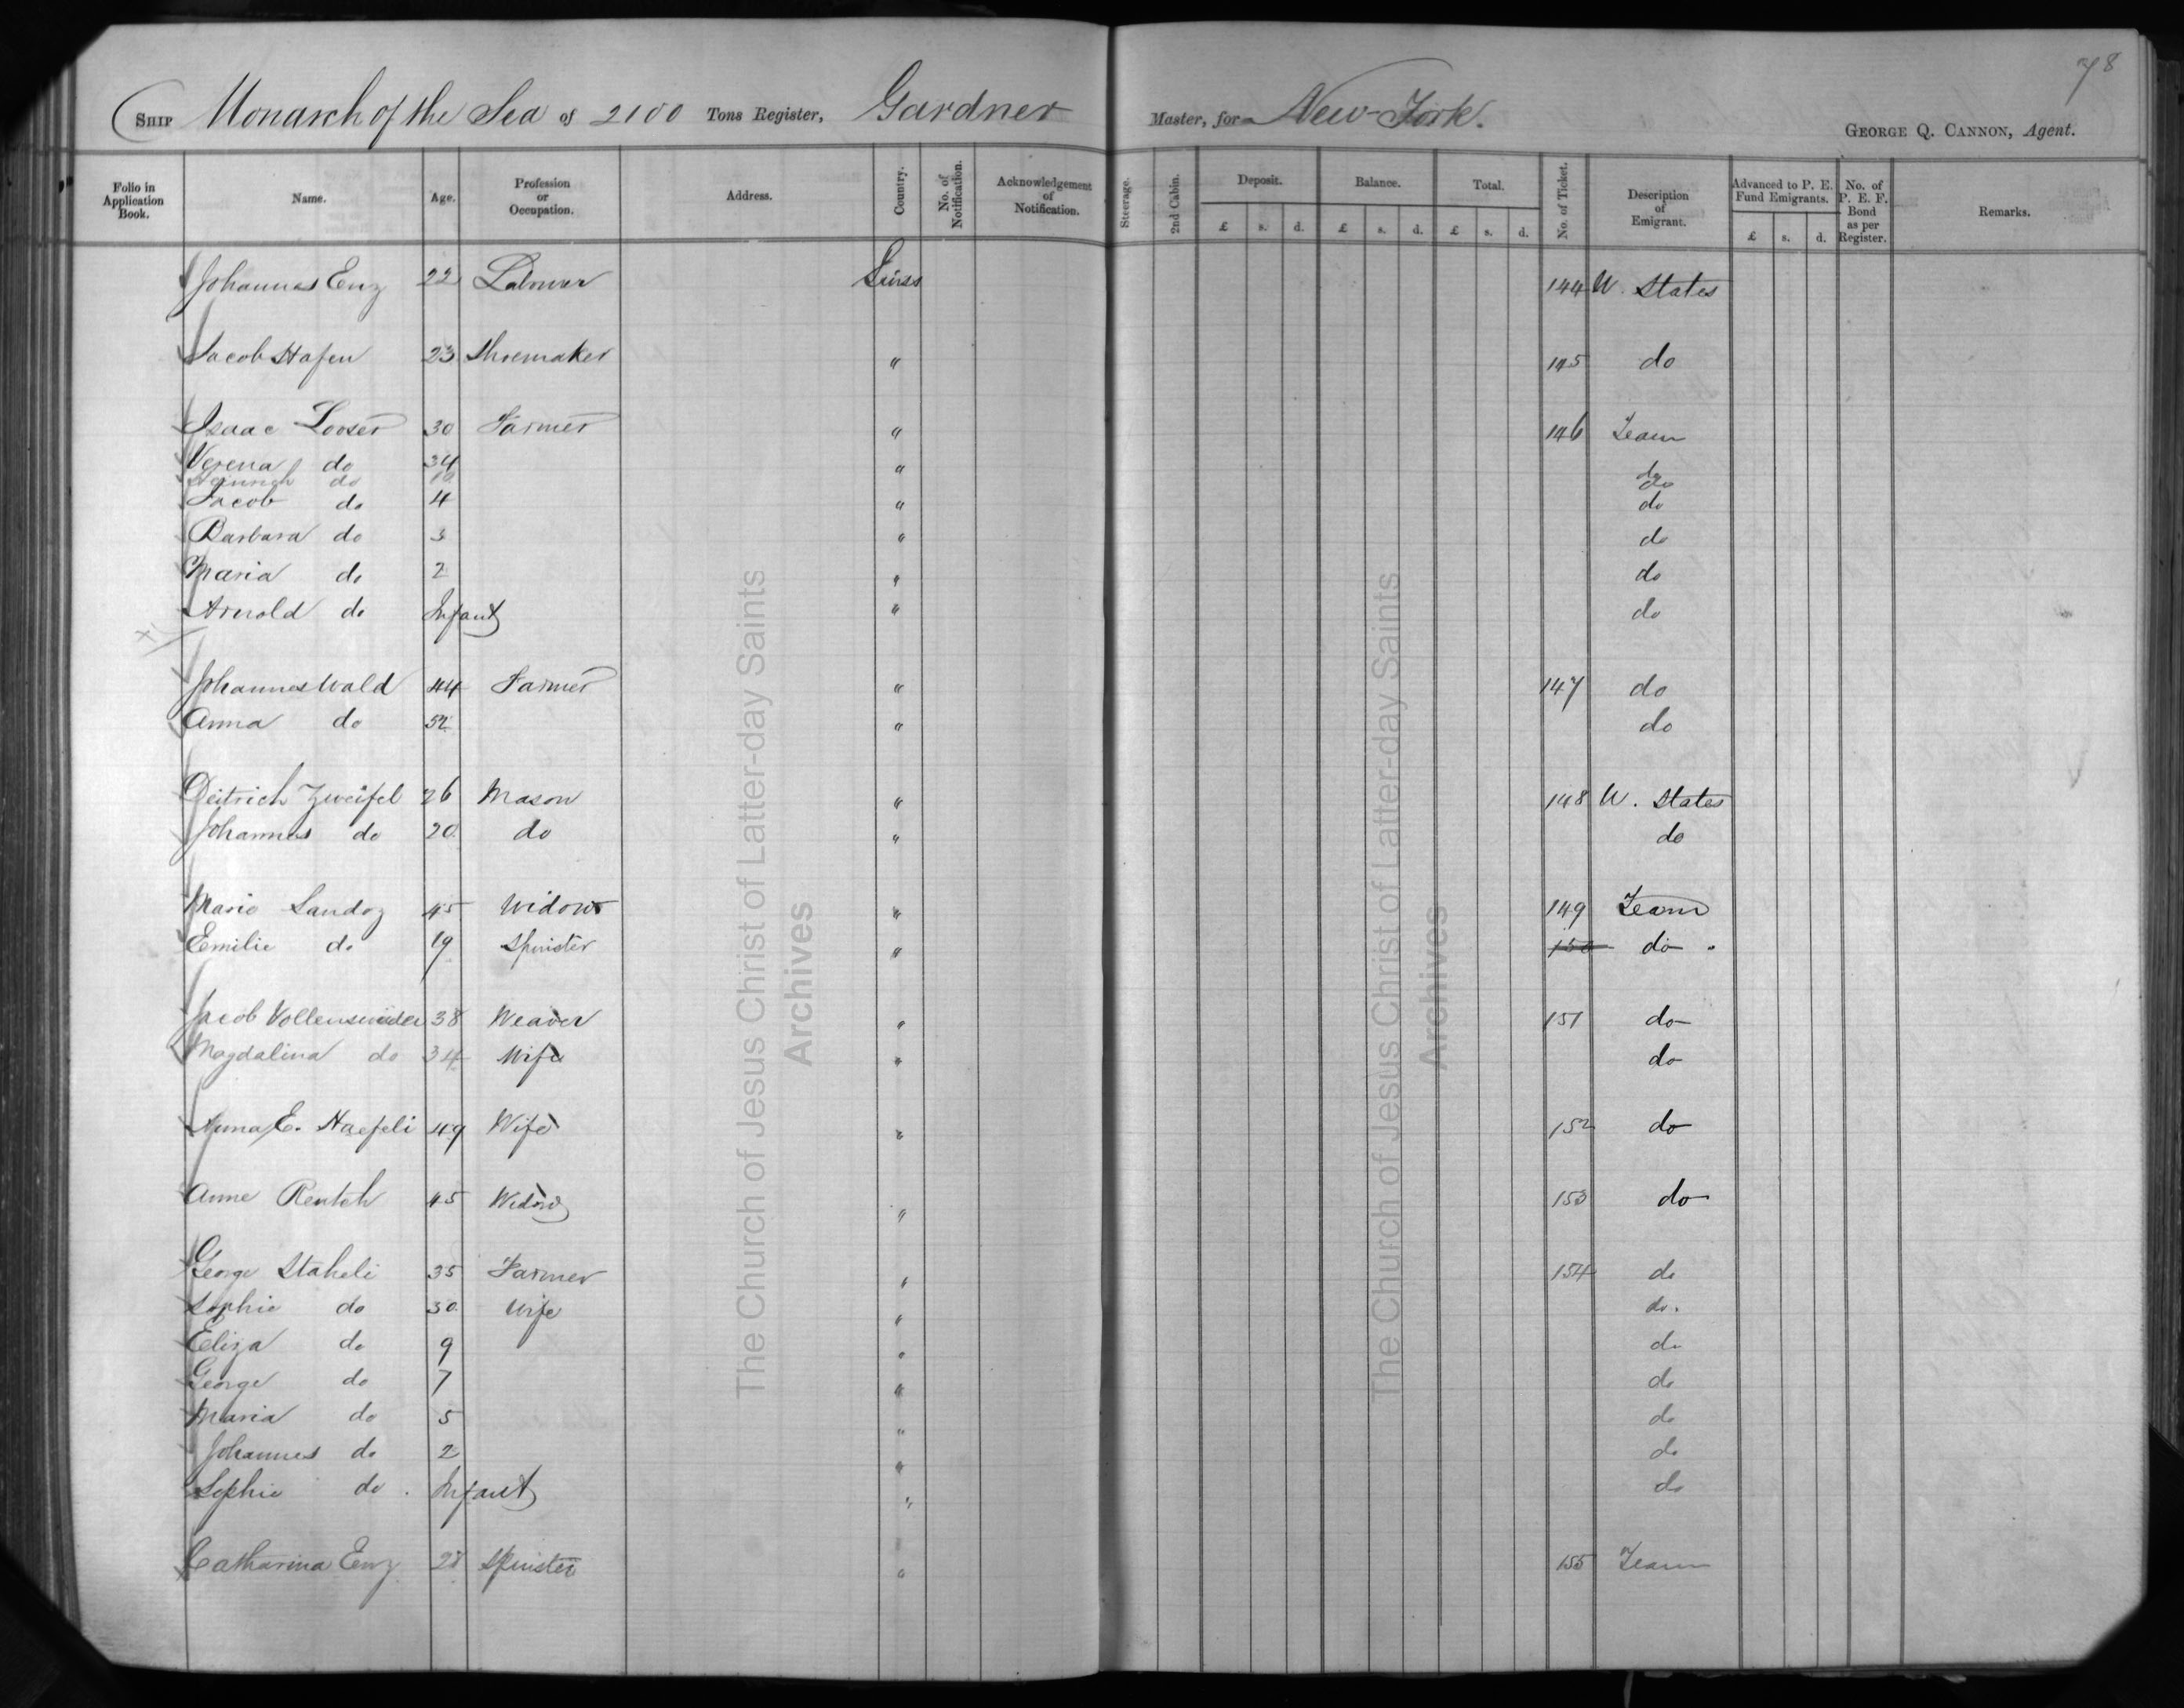 78
SHIP Monarch of the Sea of 2100 Tons Register, Gardner Master, for New-York.
GEORGE Q. CANNON, Agent.
Folio in Application Book. Name. Age. Profession or Occupation. Address. Country. No. of Notification. Acknowledgement of Notification. Steerage. 2nd Cabin. Deposit. Balance. Total. No. of Ticket. Description of Emigrant. Advanced to P. E. Fund Emigrants. No. of P. E. F. Bond as per Register. Remarks.
£ s. d. £ s. d. £ s. d. £ s. d.
Johannes Enz 22 Suiss 144 U. States
Jacob Hafen 23 Shoemaker " 145 do
Isaac Looser 30 Farmer " 146 Team
Verena do 34 " do
Heinrich do do
Jacob do 4 " do
Barbara do 3 " do
Maria do 2 " do
Arnold do Infant " do
Johannes Wald 44 Farmer " 147 do
Anna do 52 " do
Deitrich Zweifel 26 Mason " 148 U. States
Johannes do 20 do " do
Marie Sandoz 45 Widow " 149 Team
Emilie do 19 Spinster " 150 do "
Jacob Vollenweider 38 Weaver " 151 do
Magdalina do 34 Wife " do
Anna E. Naefeli 49 Wife " 152 do
Anne Rentch 45 Widow " 153 do
George Staheli 35 Farmer " 154 do
Sophie do 30 Wife " do.
Eliza do 9 " do
George do 7 " do
Maria do 5 " do
Johannes do 2 " do
Sophie do . Infant " do
Catharina Enz 28 Spinster " 155 Team
The Church of Jesus Christ of Latter-day Saints
Archives
The Church of Jesus Christ of Latter-day Saints
Archives